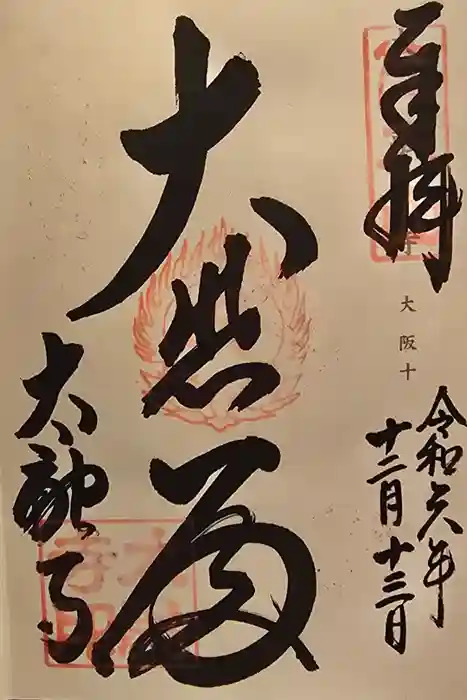 奉拝
大阪十
令和六年
十二月十三日
大悲殿
太融寺